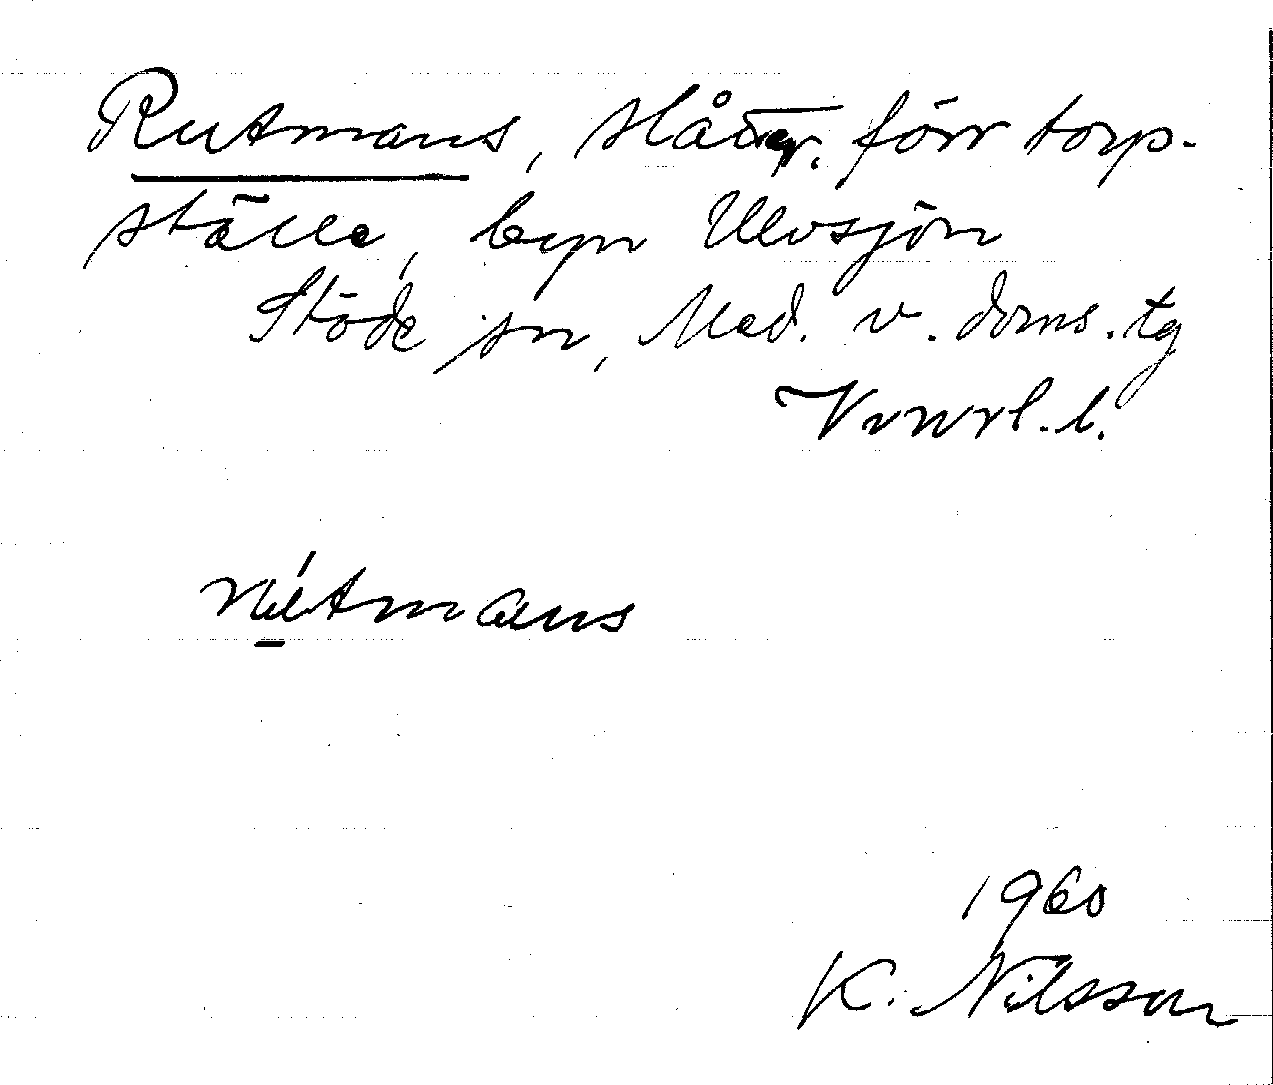 Rutmans, slåtter. förr torp-
ställe, byn Ulvsjön
Stöde sn, Med. v. doms.tg
Vvnrl. l.
rútmans
1960
K. Nilsson